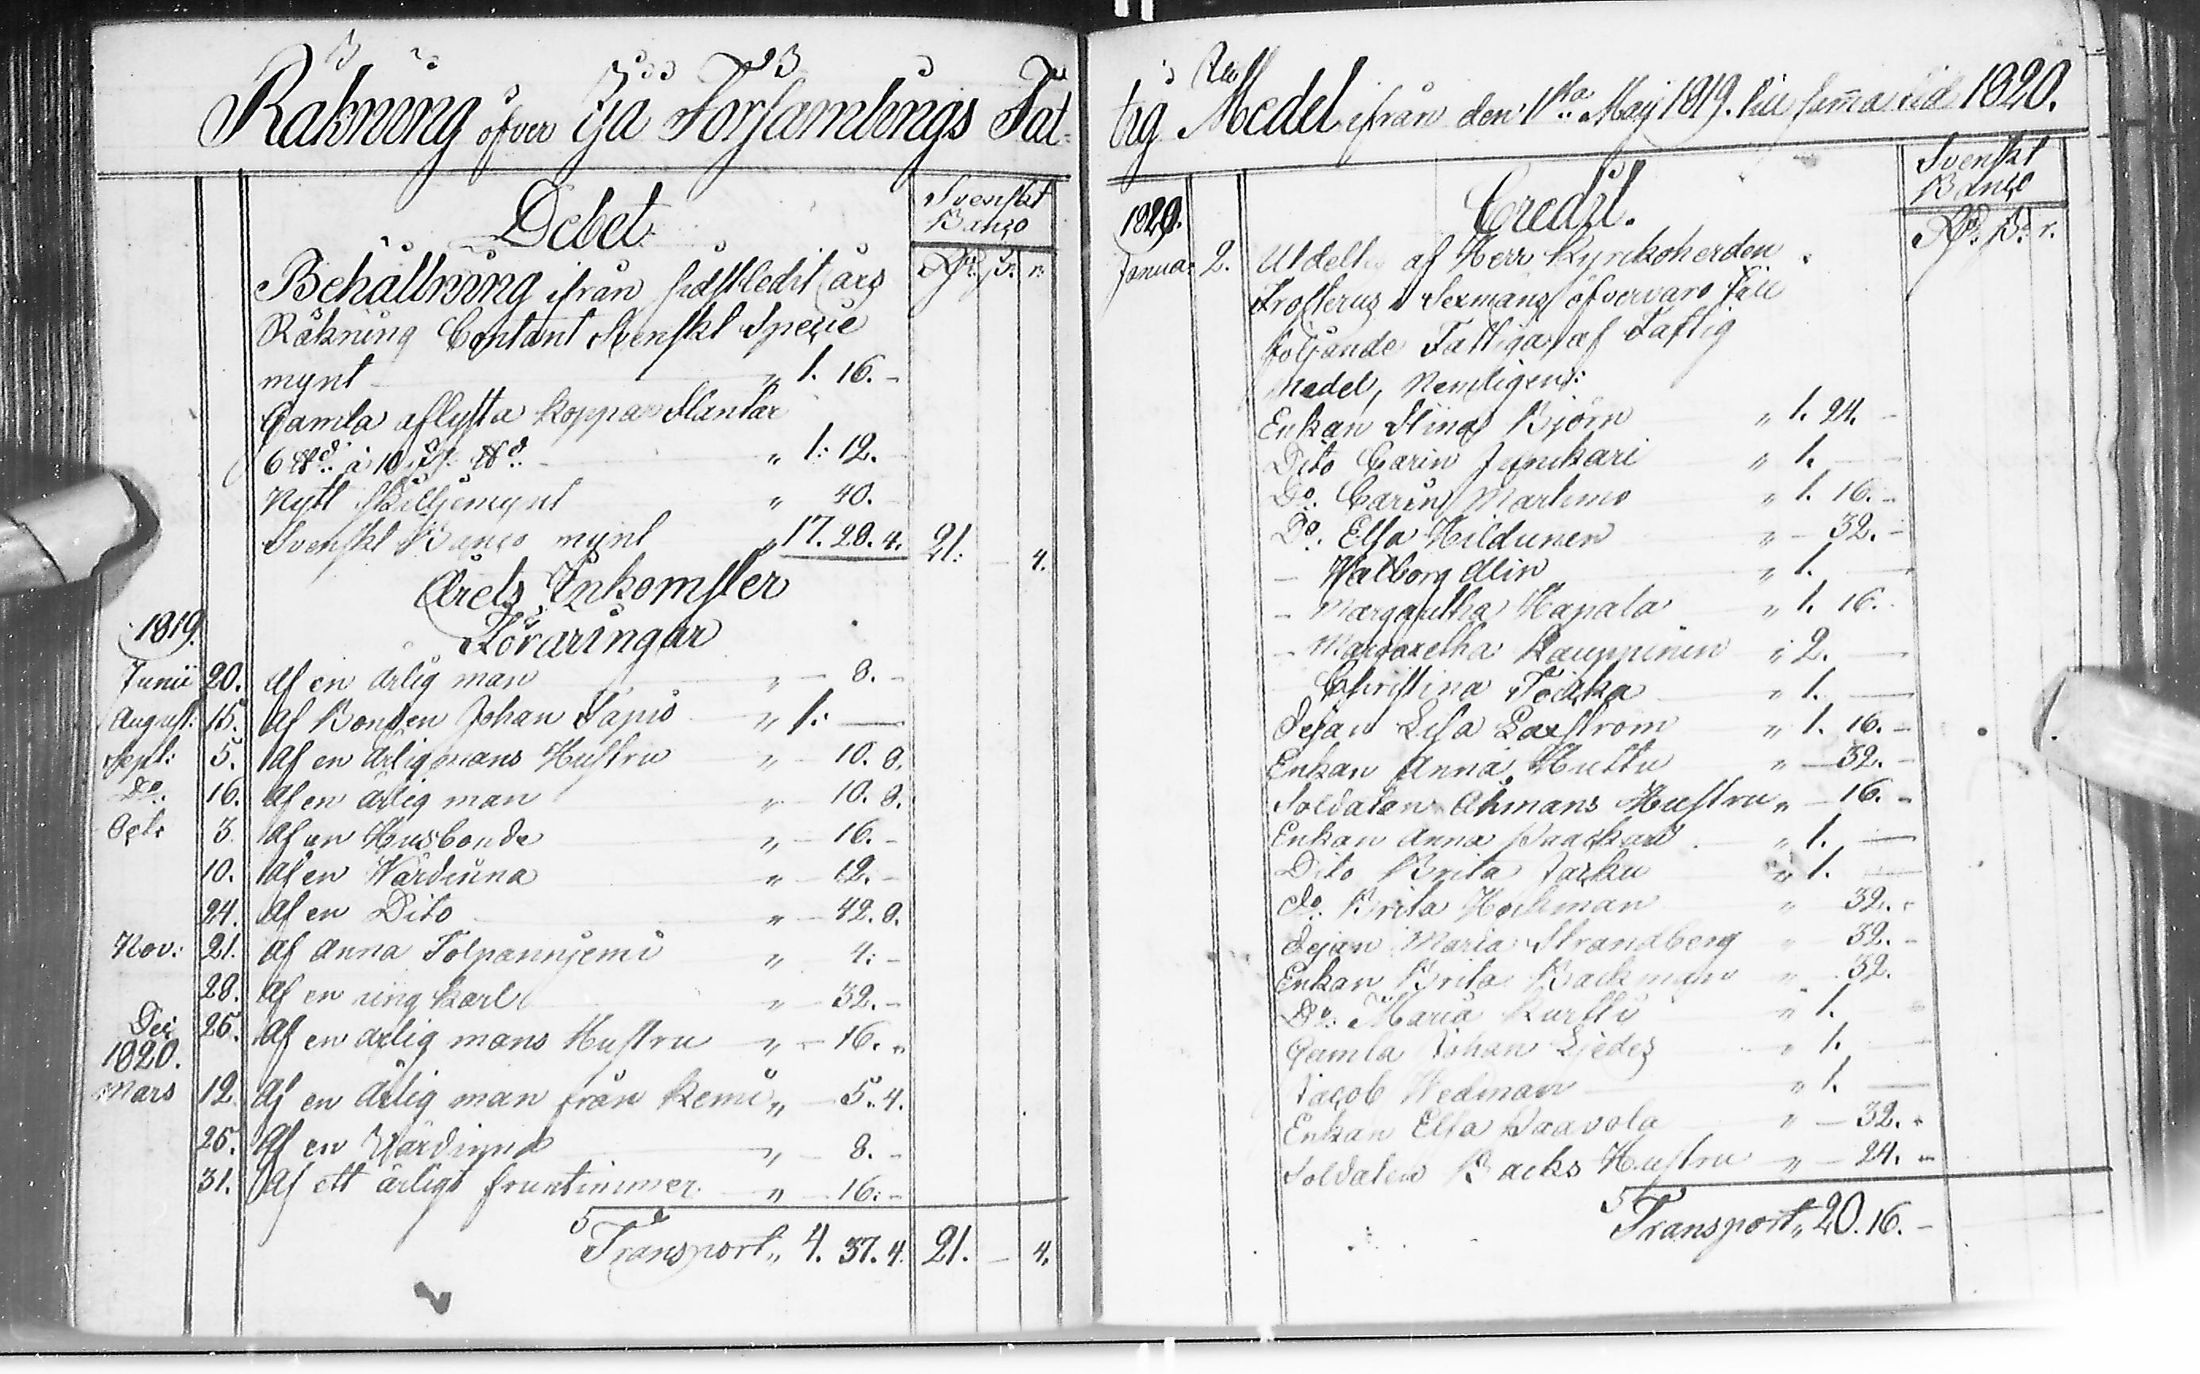 Räkning öfver Ijo Församlings Fat-
Debet
Svenskt
Banco
Rd. ß. r.
Behållning ifrån sidstledit års
Räkning Contant Svenskt Specie
mynt " 1. 16. -
Gamla aflysta koppar Slantar
6 à 10 " 1: 12.
Nytt Skilljemynt " 40. -
Svenskt Banco mynt " 17. 20. 4. 21: - 4.
Årets Inkomster
1819. Föräringar
Junii 20. Af en ärlig man " - 8. -
August: 15. Af Bonden Johan Tapio " 1: —
Sept: 5. Af en ärlig mans Hustru " - 10. 8.
Do. 16. Af en ärlig man " - 10. 8.
Oct: 3. Af en Husbonde " - 16. -
10. Af en Wärdinna " - 12. -
24. Af en Dito " - 42. 8.
Nov: 21. Af Anna Tolpanniemi " 4: -
28. Af en ung karl " - 32. -
Dec 26. Af en ärlig mans Hustru " - 16. "
1820.
Mars 12. Af en ärlig man från Kemi " - 5. 4.
25. Af en Wärdinna " - 8. -
31. Af ett ärligt fruntimmer " - 16: -
Transport " 4. 37. 4. 21. - 4.
tig Medel ifrån den 1sta Maij 1819. till samma tid 1820.
Credit.
Svenskt
Banco
Rd. ß. r.
1820.
Janua: 2. Utdelt af Herr Kyrckoherden
Frosterus i Sexmans öfvervaro till
följande Fattiga af Fattig
Medel, Nemligen:
Enkan Stina Björn " 1. 24. -
Dito Carin Junkari " 1. —
Do. Carin Martimo " 1. 16. -
Do. Elsa Hildunen " - 32. -
- Walborg Alin " 1. —
- Margaretha Hapala " 1. 16.
- Margaretha Kauppinen " 2. —
Christina Töckä " 1. —
Pejan Lisa Laxström " 1. 16. -
Enkan Anna Huttu " - 32. -
Soldaten Åhmans Hustru " - 16. -
Enkan Anna " 1. —
Dito Brita Jarku " 1. —
Do. Brita Hockman " 32. -
Pejan Maria Strandberg " 32. -
Enkan Brita Backman " 32.
Do. Maria Kursti " 1.
Gamla Johan Liedes " 1. —
Jacob Wedman " 1. —
Enkan Elsa Paavola " - 32. -
Soldaten Backs Hustru " - 24. -
Transport " 20. 16. -